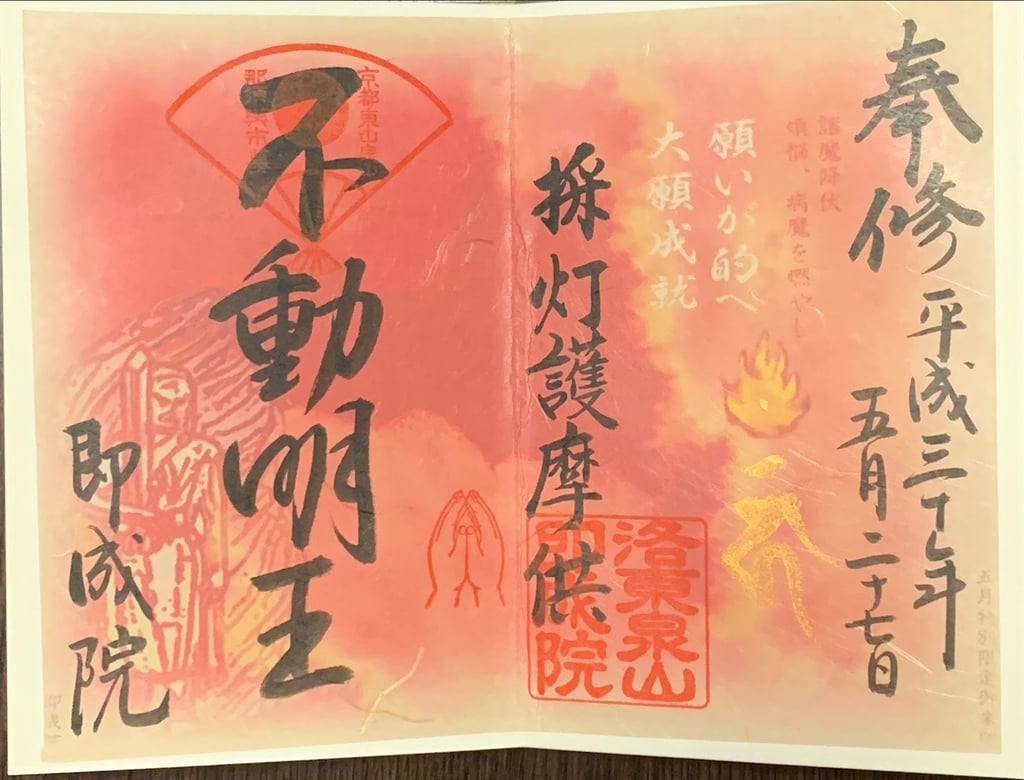 奉修
平成三十年
五月二十七日
諸魔降伏
煩悩、病魔を燃やし
願いが的へ
大願成就
採灯護摩供
洛東泉山
即成院
京都東山
那須与市
不動明王
即成院